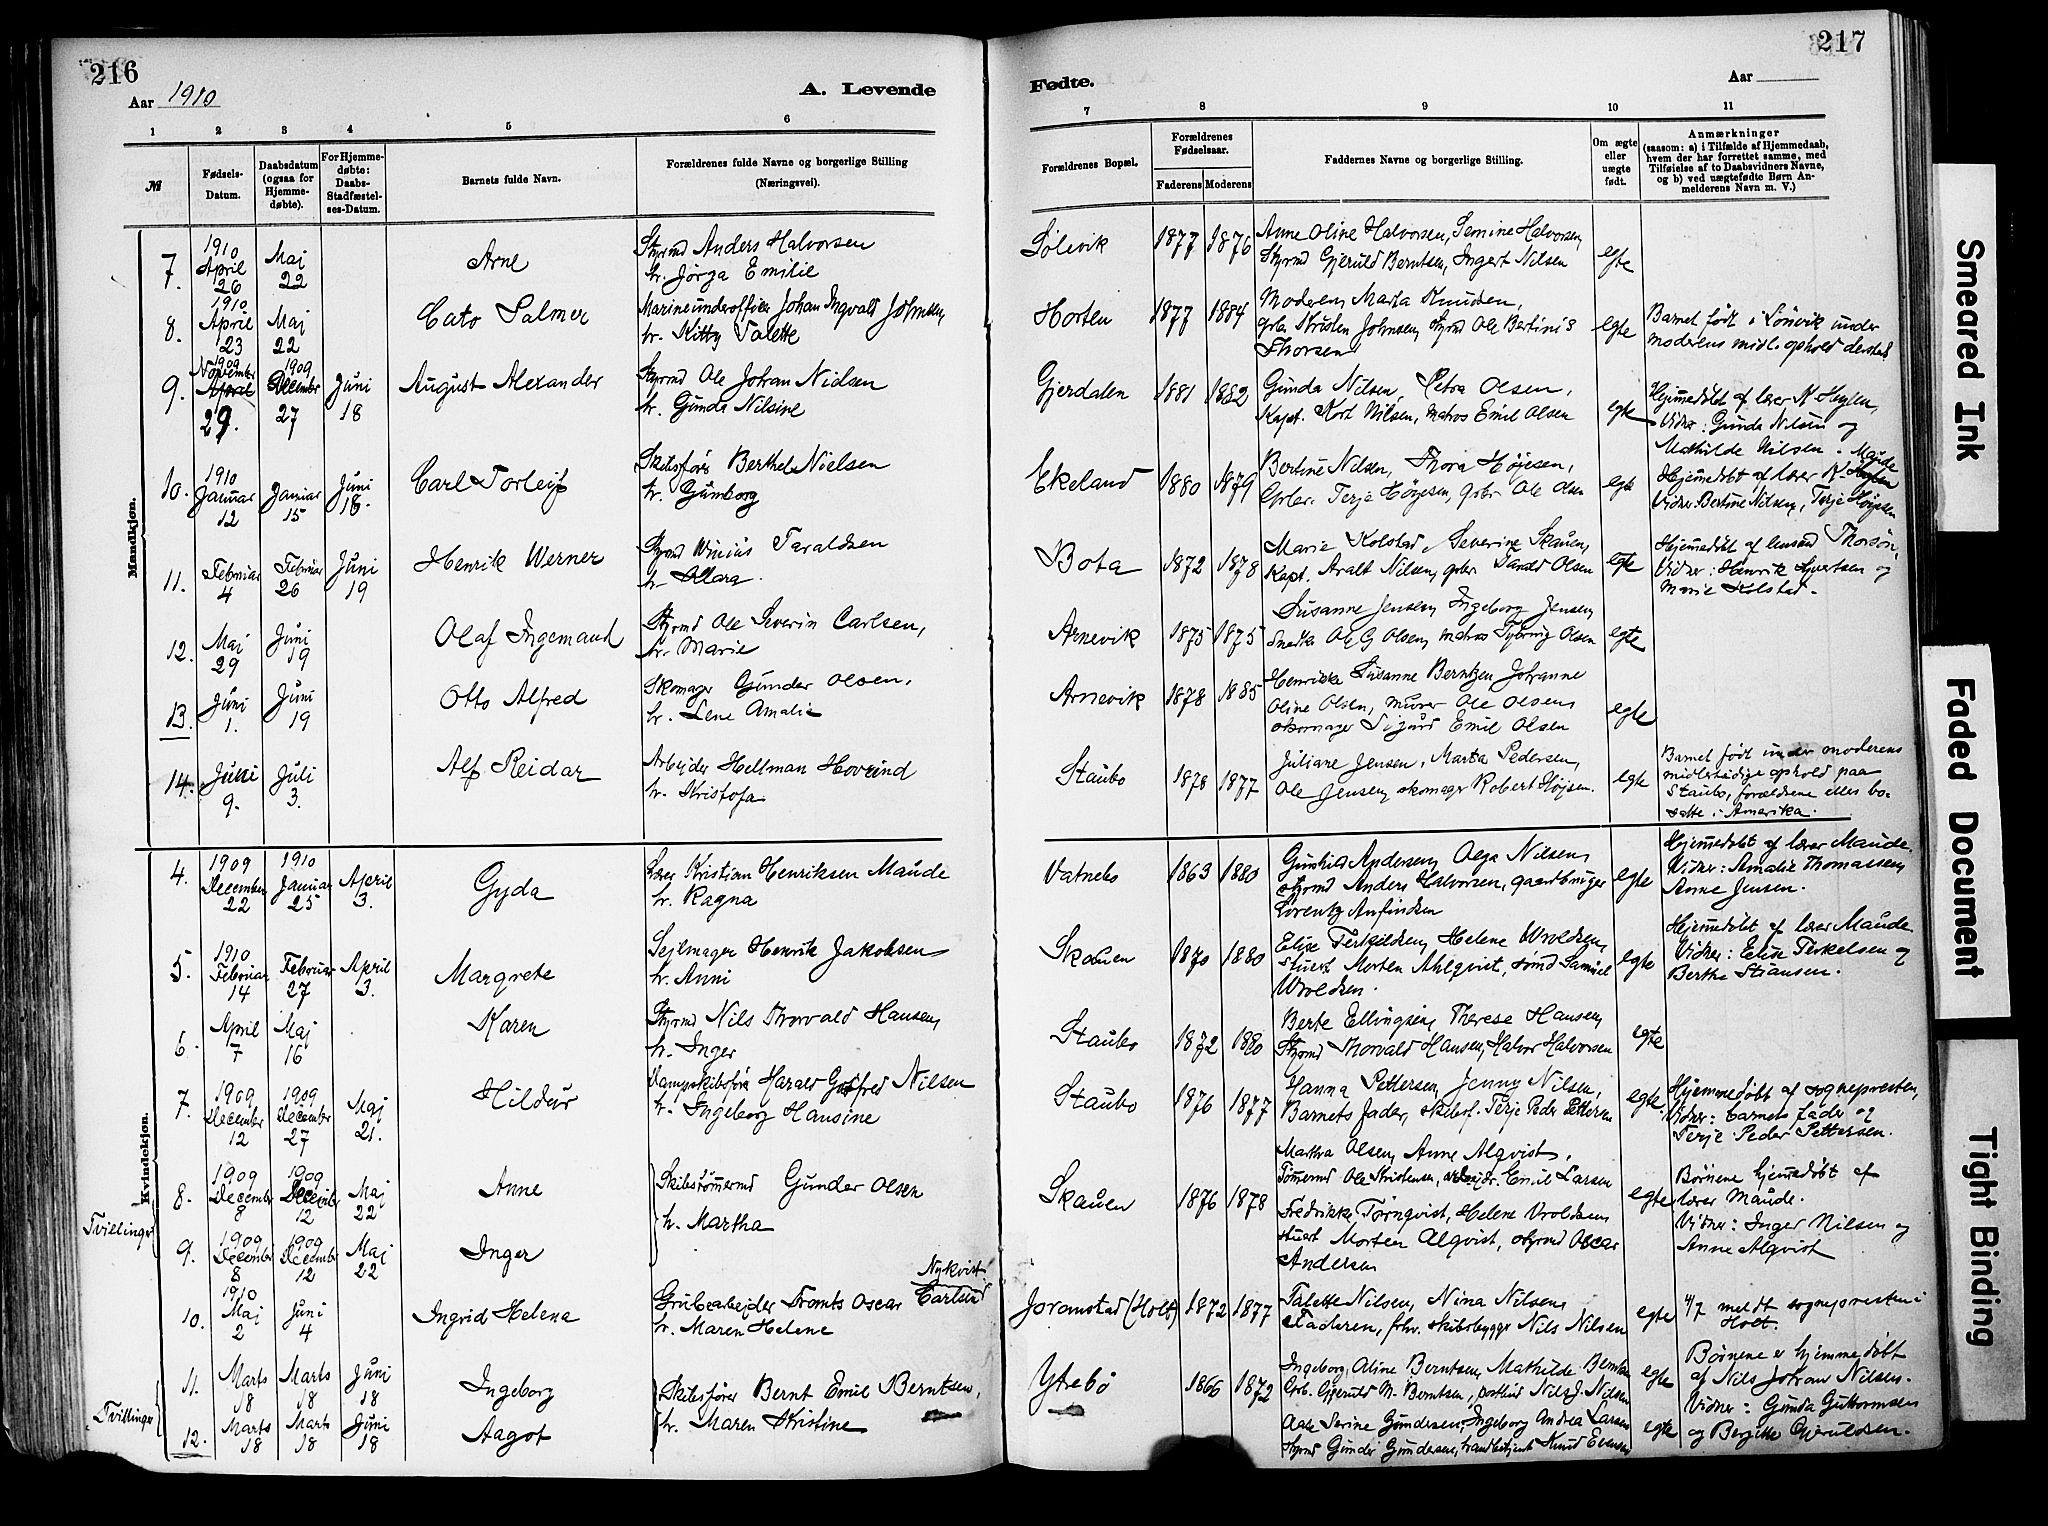 216
Aar 1910
A. Levende
1 2 3 4 5 6
№
Fødsels-Datum.
Daabsdatum (ogsaa for Hjemme-døbte).
For Hjemme-døbte: Daabs-Stadfæstel-ses-Datum.
Barnets fulde Navn.
Forældrenes fulde Navne og borgerlige Stilling (Næringsvei).
Mandkjøn.
7. 1910 April 26 Maj 22 Arne Styrmd Anders Halvorsen
h. Jørga Emilie
8. 1910 April 23 Maj 22 Cato Salmer Marineunderofficer Johan Ingvald Johnsen
h. Kitty Talette
9. 1909 November 29. 1909 December 27 Juni 18 August Alexander Styrmd Ole Johan Nielsen
h. Gunda Nilsine
10. 1910 Januar 12 Januar 15 Juni 18. Carl Torleif Skibsfører Berthel Nielsen
h. Gunborg
11. Februar 4 Februar 26 Juni 19 Henrik Werner Styrmd Taraldsen
h. Clara.
12. Maj 29 Juni 19 Olaf Ingemand Styrmd Ole Severin Carlsen,
h. Marie
13. Juni 1. Juni 19 Otto Alfred Skomager Gunder Olsen.
h. Lene Amalie
14. Juni 9. Juli 3. Alf Reidar Arbejder Hellman Hovrind
h. Kristofa
Kvindekjøn.
4. 1909 December 22 1910 Januar 25 April 3. Gyda Lærer Kristian Henriksen Maude
h. Ragna
5. 1910 Februar 14 Februar 27 April 3. Margrete Sejlmager Henrik Jakobsen
h. Anni
6. April 7 Maj 16 Karen Styrmd Nils Thorvald Hansen,
h. Inger
7. 1909 December 12 1909 December 27 Maj 21. Hildur Dampskibsfører Harald Godfred Nilsen
h. Ingeborg Hansine
Tvillinger
8. 1909 December 8 1909 December 12 Maj 22 Anne Skibstømmermd Gunder Olsen
h. Martha
9. 1909 December 8 1909 December 12 Maj 22 Inger
Nykvist
10. 1910 Maj 2 Juni 4 Ingrid Helena Grubearbejder Fronts Oscar Carlsund
h. Maren Helene
Tvillinger
11. Marts 18 Marts 18 Juni 18 Ingeborg Skibsfører Bernt Emil Berntsen,
h. Maren Kristine
12. Marts 18 Marts 18 Juni 18 Aagot
217
Fødte.
Aar
7 8 9 10 11
Forældrenes Bopæl.
Forældrenes Fødselsaar.
Faderens Moderens
Faddernes Navne og borgerlige Stilling.
Om ægte eller uægte født.
Anmærkninger
(saasom: a) i Tilfælde af Hjemmedaab, hvem der har forrettet samme, med Tilføielse af to Daabsvidners Navne, og b) ved uægtefødte Børn An-melderens Navn m. V.)
Sølevik 1877 1876 Anne Oline Halvorsen, Semine Halvorsen,
Styrmd Gjeruld Berntsen, Ingert Nilsen egte
Horten 1877 1884 Moderen, Marta Knudsen,
grbr Kristen Johnsen, styrmd Ole Bertinis
Thorsen egte
Barnet født i Lønvik under
moderens midl. ophold dersted
Gjerdalen 1881 1882 Gunda Nilsen, Petra Olsen,
Kapt. Kort Nilsen, matros Emil Olsen egte
Hjemmedøbt af lærer K
Vidner: Gunda Nilsen og
Mathilde Nilsen.
Ekeland 1880 1879 Bertine Nilsen, Thora Højesen,
Grbr. Terje Højesen, grbr Ole Olsen egte
Maude
Hjemmedøbt af lærer K.
Vidner: Bertine Nilsen, Terje Højesen
Bota 1872 1878 Marie Kolstad, Severine Skauen,
Kapt. Aralt Nilsen, grbr Tarald Olsen egte
Hjemmedøbt af Thorson,
Vidner: Henrik Syvertsen og
Marie Kolstad.
Arnevik 1875 1875 Susanne Jensen, Ingeborg Jensen,
Snedker Ole G Olsen, matros Olsen egte
Arnevik 1878 1885 Henrikke Susanne Berntzen, Johanne
Oline Olsen, murer Ole Olsen,
skomager Sigurd Emil Olsen egte
Staubo 1878 1877 Juliane Jensen, Marta Pedersen,
Ole Jensen, skomager Robert Højesen. egte
Barnet født under moderens
midlertidige ophold paa
Staubo, forældrene ellers bo-
satte i Amerika.
Vatnebo 1863 1880 Gunhild Andersen, Olga Nilsen,
styrmd Anders Halvorsen, gaardbruger
Lorentz Anfindsen egte
Hjemmedøbt af lærer Maude
Vidner: Amalie Thomassen,
Anne Jensen.
Skauen 1870 1880 Elise Terkildsen, Helene Wroldsen,
stuert Morten Ahlqvist, sømd Samuel
Wroldsen. egte
Hjemmedøbt af lærer Maude
Vidner: Elise Terkelsen og
Berthe Stiansen.
Staubo 1872 1880 Berte Ellingsen, Therese Hansen,
Styrmd Thorvald Hansen, Halvor Halvorsen egte
Staubo 1876 1877 Hanna Pettersen, Jenny Nilsen,
Barnets fader, skibsf. Terje Peder Pettersen egte.
Hjemmedøbt af sognepresten,
Vidner: barnets fader og
Terje Peder Pettersen.
Skauen 1876 1878 Martha Olsen, Anne Alqvist,
Tømermd Ole Kristensen, arbejdr. Emil Larsen
Fredrikke Tørnqvist, Helene Vroldsen,
stuert Morten Alqvist, styrmd Oscar
Andersen egte
Børnene hjemmedøbt af
lærer Maude.
Vidner: Inger Nilsen og
Anne Alqvist
Joramstad (Holt) 1872 1877 Talette Nilsen, Nina Nilsen,
Faderen, fhv. skibsbygger Nils Nilsen egte
4/7 meldt sognepresten i
Holt.
Ytrebø 1866 1872 Ingeborg Aline Berntsen, Mathilde Berntsen
Grb. Gjeruld M. Berntsen, Nils J. Nilsen egte
Aase Serine Gundersen, Ingeborg Andrea Larsen
Styrmd Gunder Gundersen, Knud Evensen egte
Børnene er hjemmedøbt
af Nils Johan Nilsen.
Vidner: Gunda Guttormsen
og Bergitte Gjeruldsen.
Smeared Ink
Faded Document
Tight Binding